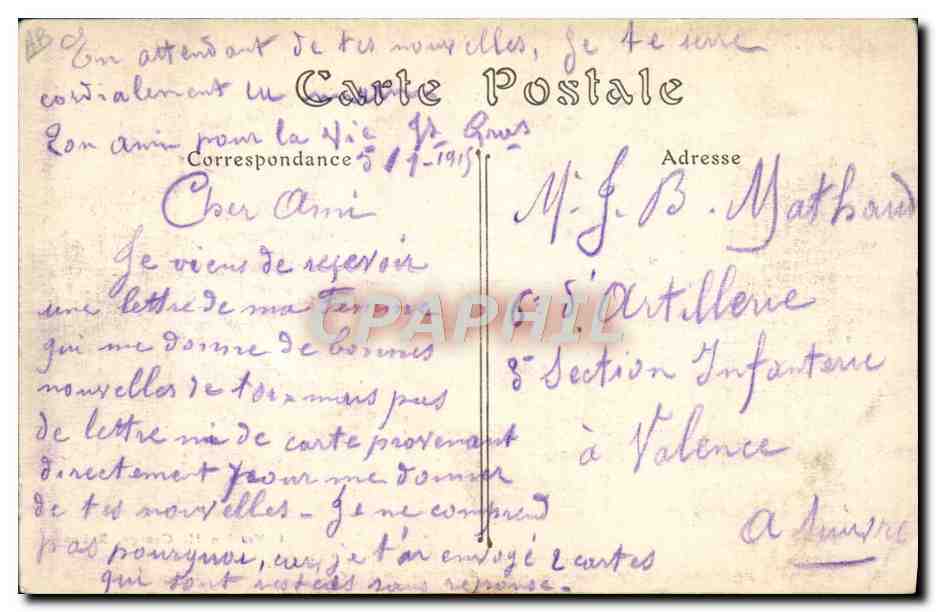 AB
En attendant de tes nouvelles, je te serre
cordialement la
Carte Postale
Ton ami pour la vie Jh Gros
Correspondance
5/1-1915
Cher Ami
Je viens de recevoir
une lettre de ma femme
qui me donne de bonnes
nouvelles de toi, mais pas
de lettre ni de carte provenant
directement pour me donner
de tes nouvelles. Je ne comprend
pas pourquoi, car je t'ai envoyé 2 cartes
qui sont restées sans réponse.
Adresse
Mr J. B. Mathaud
6e d'Artillerie
Section Infanterie
à Valence
A Suivre
CPAPHIL